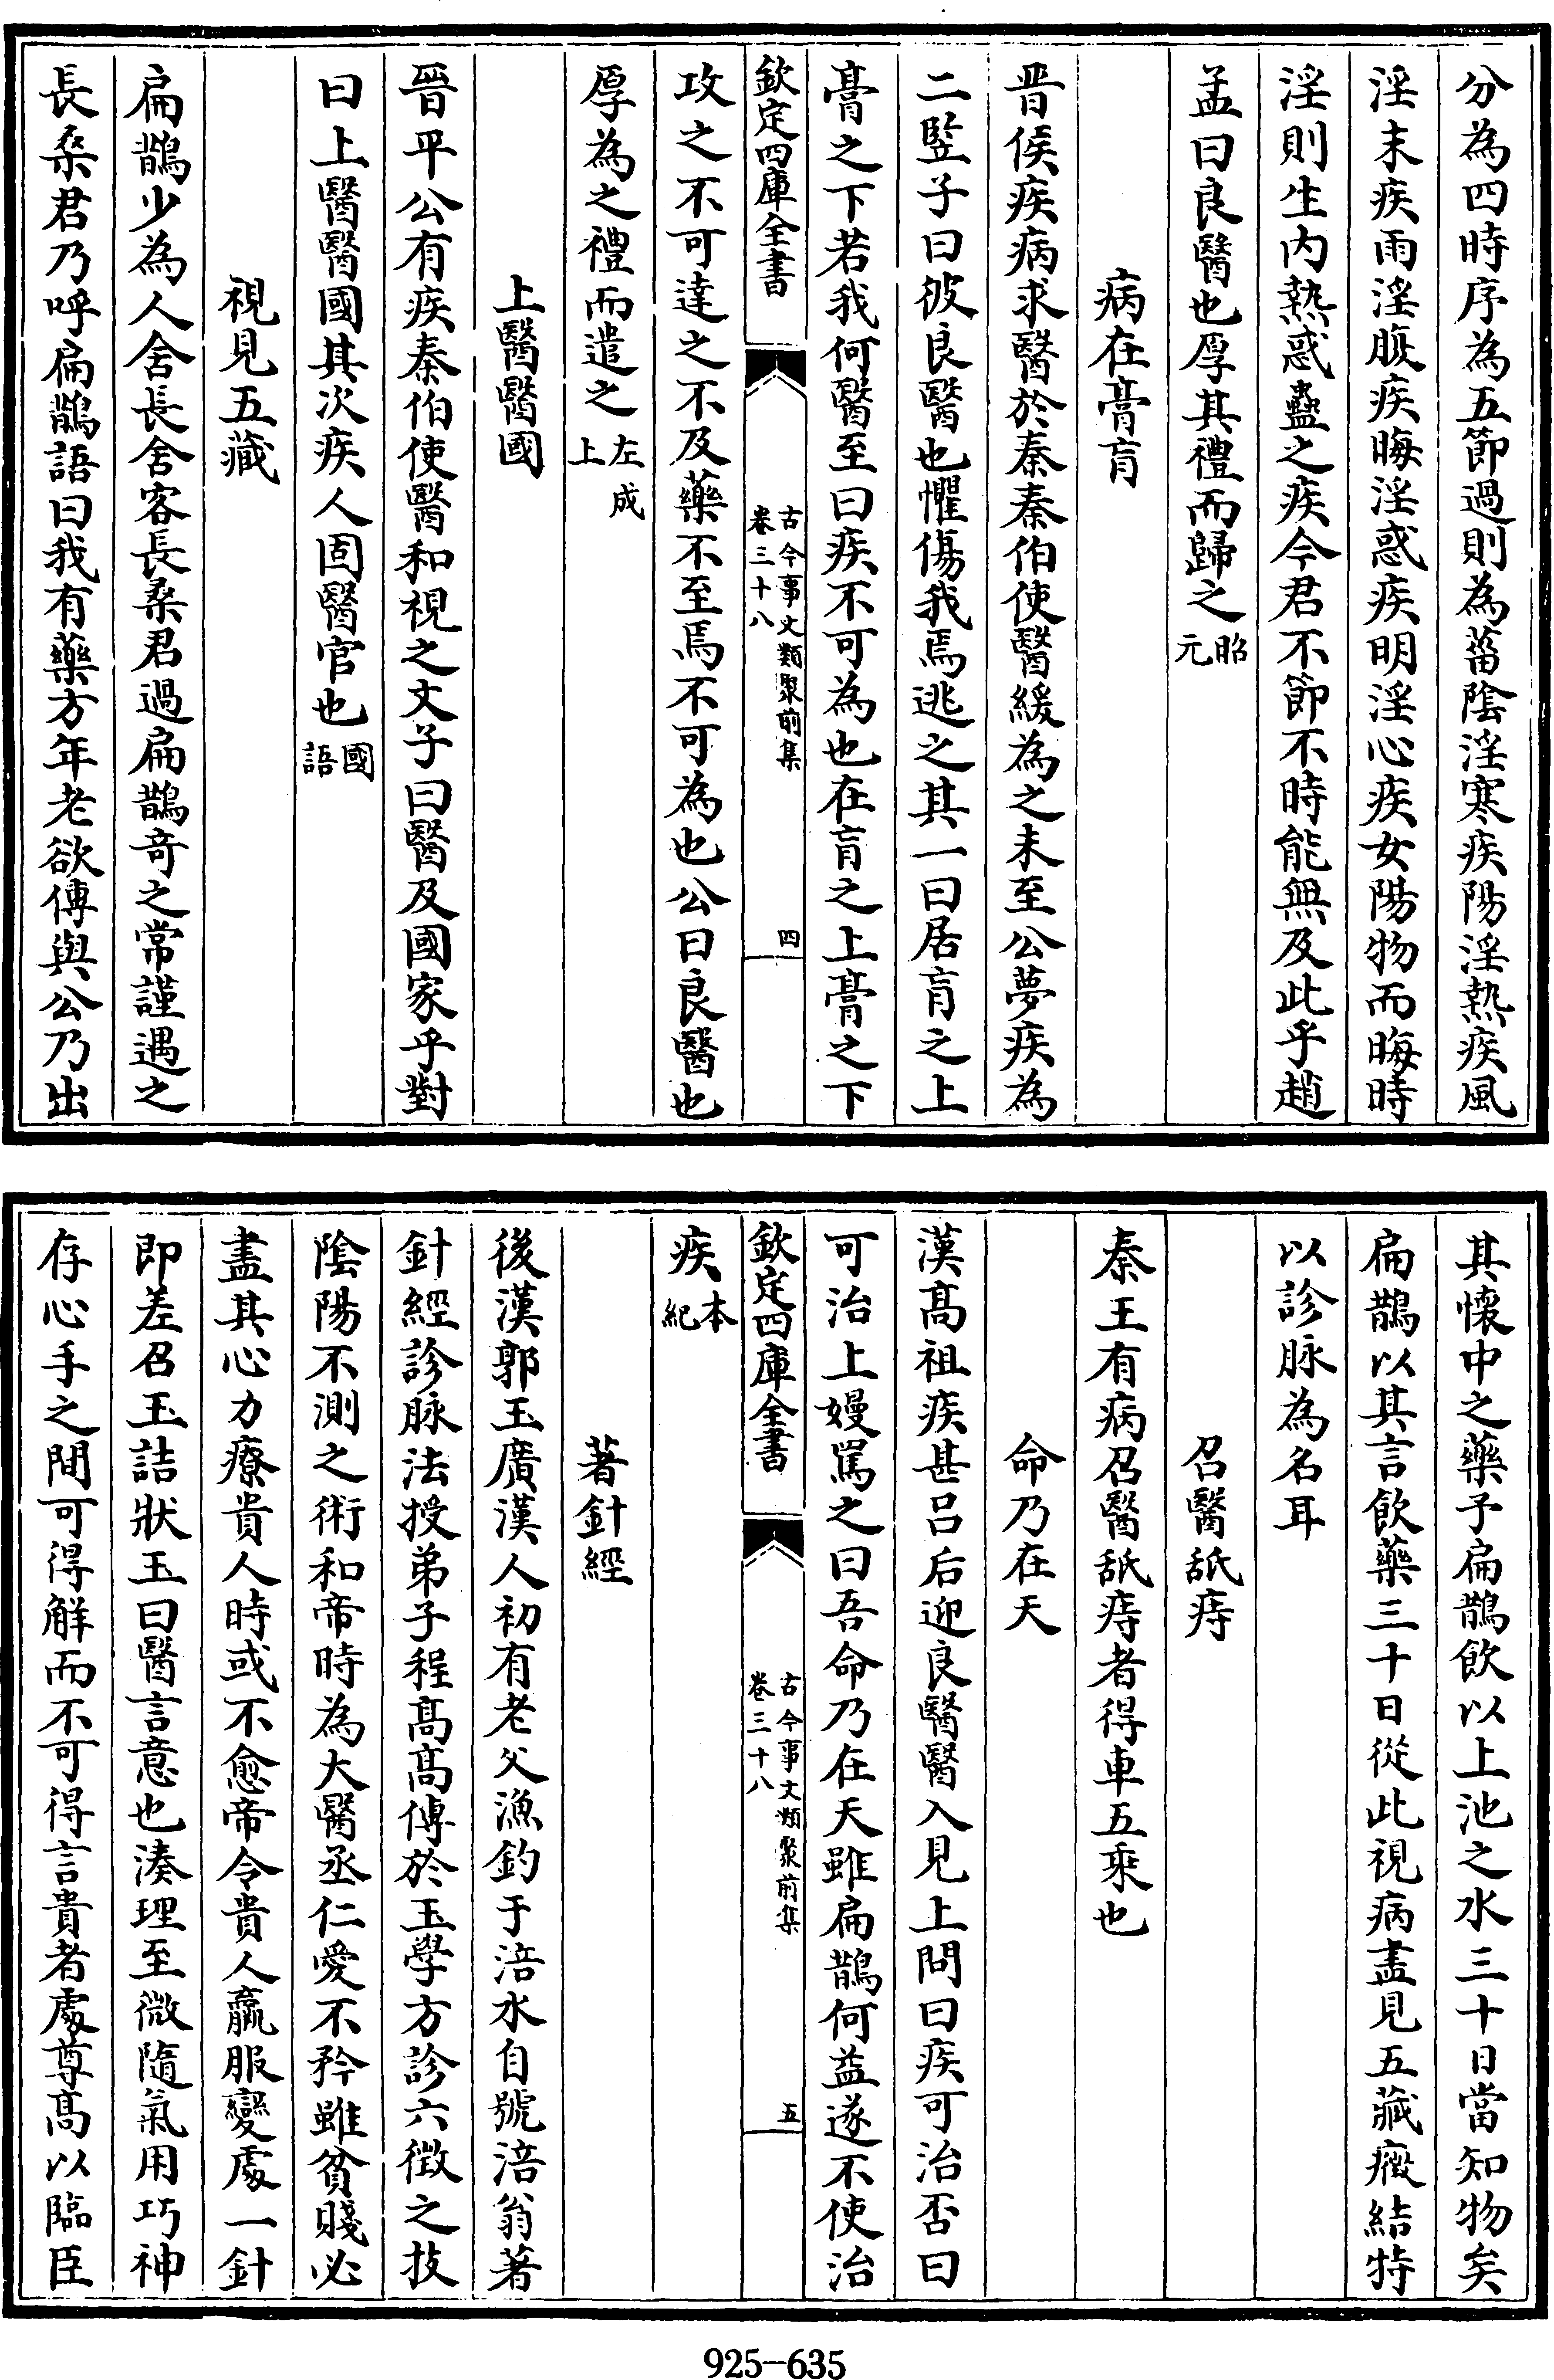 分為四時序為五節過則為菑陰淫寒疾陽淫熱疾風
淫末疾雨淫腹疾晦淫惑疾明淫心疾女陽物而晦時
淫則生内熱惑蠱之疾今君不節不時能無及此乎趙
孟曰良醫也厚其禮而歸之昭元
病在膏肓
晋侯疾病求醫於秦秦伯使醫緩為之未至公夢疾為
二豎子曰彼良醫也懼傷我焉逃之其一曰居肓之上
膏之下若我何醫至曰疾不可為也在肓之上膏之下
欽定四庫全書
古今事文類聚前集
卷三十八
四
攻之不可達之不及藥不至焉不可為也公曰良醫也
厚為之禮而遣之左成上
上醫醫國
晉平公有疾秦伯使醫和視之文子曰醫及國家乎對
曰上醫醫國其次疾人固醫官也國語
視見五藏
扁鵲少為人舍長舍客長桑君過扁鵲奇之常謹遇之
長桑君乃呼扁鵲語曰我有藥方年老欲傳與公乃出
其懷中之藥予扁鵲飲以上池之水三十日當知物矣
扁鵲以其言飲藥三十日從此視病盡見五藏癥結特
以診脉為名耳
召醫舐痔
秦王有病召醫舐痔者得車五乘也
命乃在天
漢髙祖疾甚吕后迎良醫醫入見上問曰疾可治否曰
可治上嫚罵之曰吾命乃在天雖扁鵲何益遂不使治
欽定四庫全書
古今事文類聚前集
卷三十八
五
疾本紀
著針經
後漢郭玉廣漢人初有老父漁釣于涪水自號涪翁著
針經診脉法授弟子程髙髙傳於玉學方診六徴之技
陰陽不測之術和帝時為大醫丞仁愛不矜雖貧賤必
盡其心力療貴人時或不愈帝令貴人羸服變處一針
即差召玉詰狀玉曰醫言意也湊理至微隨氣用巧神
存心手之間可得解而不可得言貴者處尊髙以臨臣
925-635